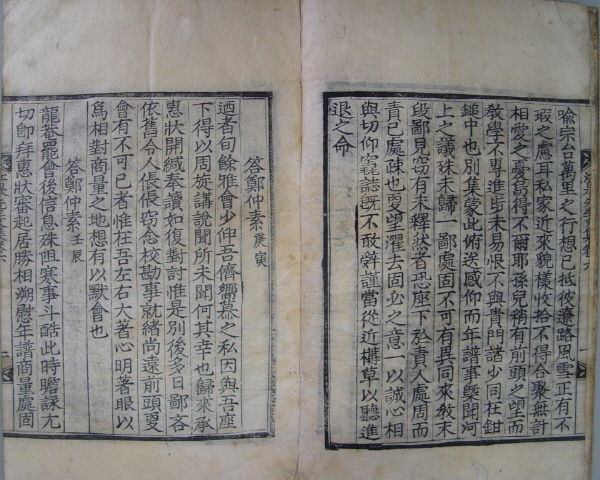 喩宗台萬里之行想已抵彼遼路風雪正有不
瑕之慮耳私家近來貌樣收拾不得合聚無計
相愛之憂曷得不爾耶孫兒稍有前頭之望而
敎學不專進步未易恨不與貴門諸少同在鉗
鎚中也別集蒙此俯送感仰而年譜事槩聞河
上之議姝未歸一鄙處固不可有異同來敎末
段鄙見窃有未釋然者恐座下於靑人處周而
責己處疎也更望濯去固必之意一以誠心相
與切仰窺誌旣不敢辭謹當從近構草以聽進
退之命
答鄭仲素 庚寅
迺者旬餘雅會少仰吾儕嚮慕之私因與吾座
下得以周旋講說聞所未聞何其幸也歸來承
惠狀開緘奉讀如復對討惟是別後多日鄙吝
依舊令人悵悵窃念校勘事就緖尚遠前頭夏
會有不可已者惟在吾左右大著心明著眼以
爲相對商量之地想有以默會也
答鄭仲素 壬辰
龍蛰罷會後信息殊阻寒事斗酷此時瞻誄尤
切卽拜惠狀審起居勝相溯慰年譜商量處固